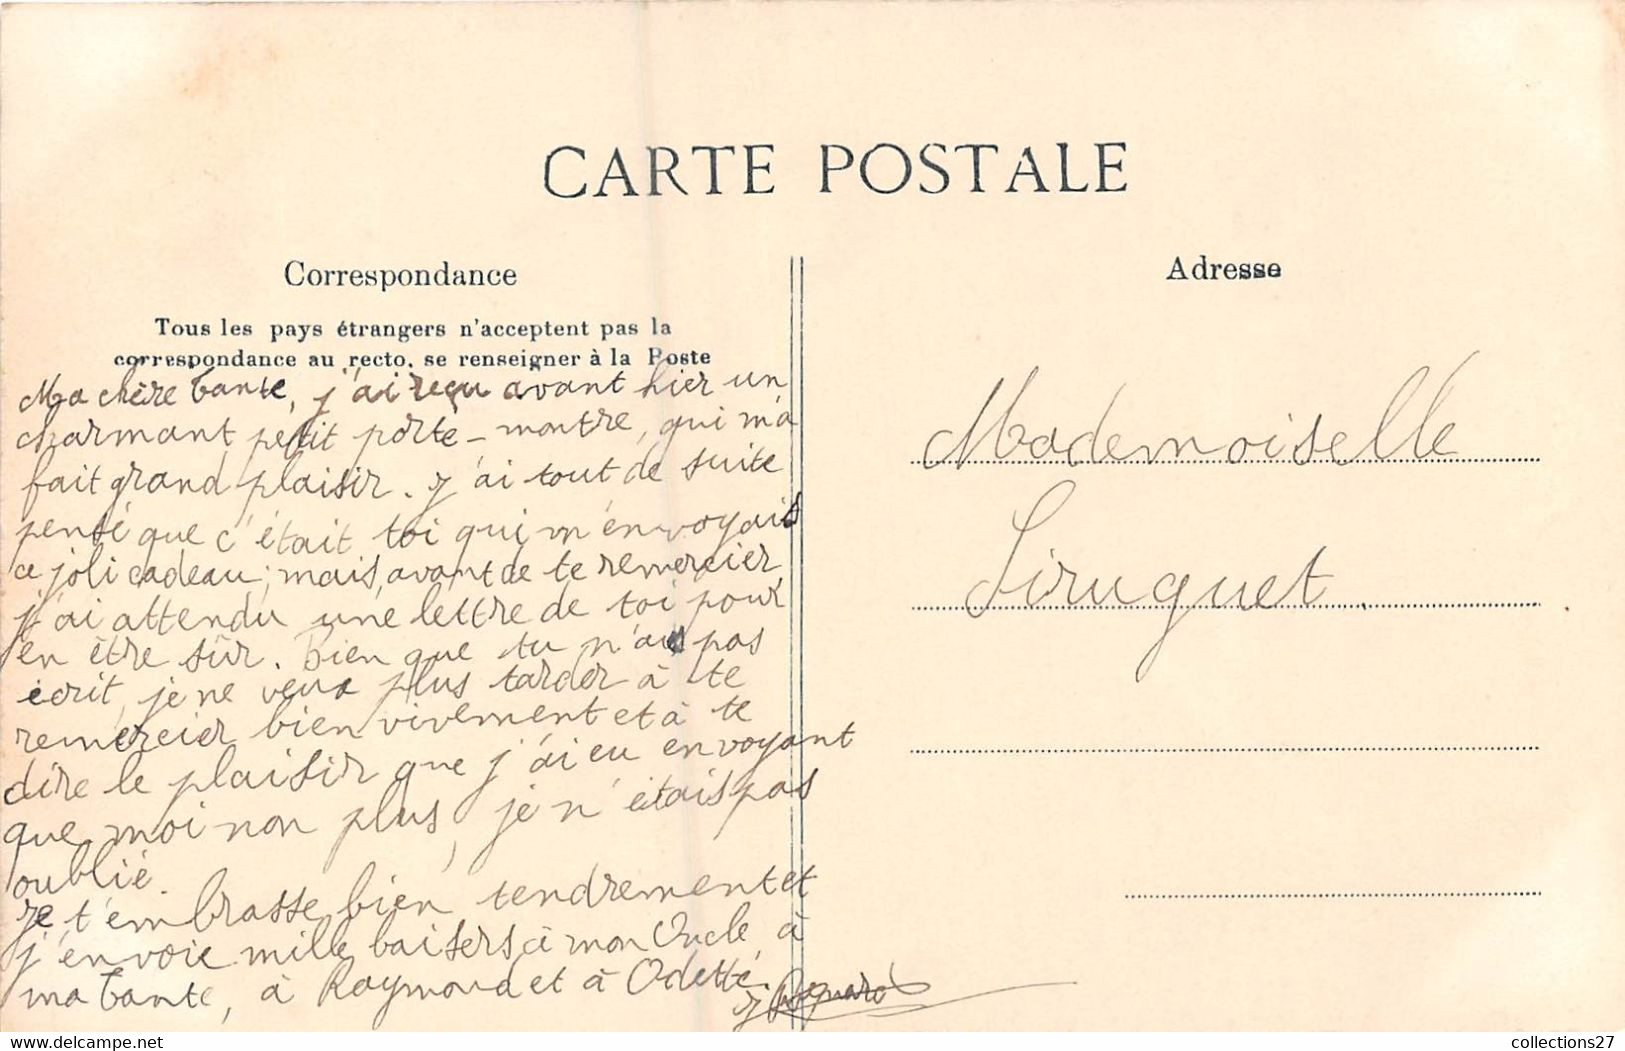 CARTE POSTALE
Correspondance
Tous les pays étrangers n'acceptent pas la
correspondance au recto, se renseigner à la Poste
Ma chère tante, j'ai reçu avant hier un
charmant petit porte-montre, qui m'a
fait grand plaisir. J'ai tout de suite
pensé que c'était toi qui m'envoyais
ce joli cadeau; mais, avant de te remercier,
j'ai attendu une lettre de toi pour
en être sûr. Bien que tu n'aies pas
écrit, je ne veux plus tarder à te
remercier bien vivement et à te
dire le plaisir que j'ai eu en voyant
que moi non plus, je n'étais pas
oublié.
Je t'embrasse bien tendrement et
j'envoie mille baisers à mon Oncle, à
ma tante, à Raymond et à Odette.
Adresse
Mademoiselle
Liruguet.
collections27